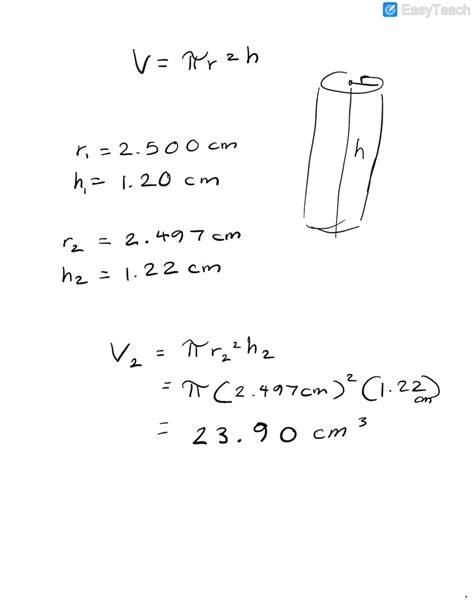 EasyTeach
V = πr²h
r
h
r₁ = 2.500 cm
h₁ = 1.20 cm
r₂ = 2.497 cm
h₂ = 1.22 cm
V₂ = πr₂²h₂
= π(2.497cm)²(1.22cm)
= 23.90 cm³